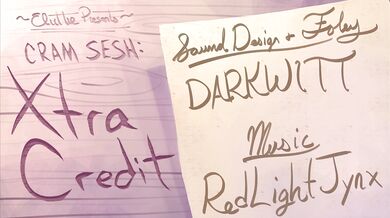 ~ Elutbe Presents ~
CRAM SESH:
Xtra
Credit
Sound Design + Foley
DARKWITT
Music
RedLightJynx